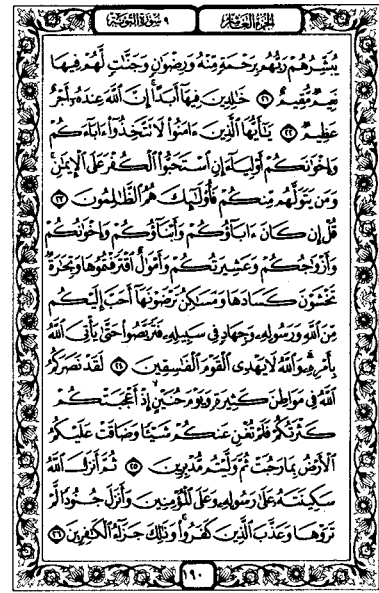 الجزء العاشر ٩ سورة التوبة
يُبَشِّرُهُمْ رَبُّهُم بِرَحْمَةٍ مِّنْهُ وَرِضْوَٰنٍ وَجَنَّٰتٍ لَّهُمْ فِيهَا
نَعِيمٌ مُّقِيمٌ ﴿٢١﴾ خَٰلِدِينَ فِيهَآ أَبَدًا إِنَّ ٱللَّهَ عِندَهُۥٓ أَجْرٌ
عَظِيمٌ ﴿٢٢﴾ يَٰٓأَيُّهَا ٱلَّذِينَ ءَامَنُوا۟ لَا تَتَّخِذُوٓا۟ ءَابَآءَكُمْ
وَإِخْوَٰنَكُمْ أَوْلِيَآءَ إِنِ ٱسْتَحَبُّوا۟ ٱلْكُفْرَ عَلَى ٱلْإِيمَٰنِ ۚ
وَمَن يَتَوَلَّهُم مِّنكُمْ فَأُو۟لَٰٓئِكَ هُمُ ٱلظَّٰلِمُونَ ﴿٢٣﴾
قُلْ إِن كَانَ ءَابَآؤُكُمْ وَأَبْنَآؤُكُمْ وَإِخْوَٰنُكُمْ
وَأَزْوَٰجُكُمْ وَعَشِيرَتُكُمْ وَأَمْوَٰلٌ ٱقْتَرَفْتُمُوهَا وَتِجَٰرَةٌ
تَخْشَوْنَ كَسَادَهَا وَمَسَٰكِنُ تَرْضَوْنَهَآ أَحَبَّ إِلَيْكُم
مِّنَ ٱللَّهِ وَرَسُولِهِۦ وَجِهَادٍ فِى سَبِيلِهِۦ فَتَرَبَّصُوا۟ حَتَّىٰ يَأْتِىَ ٱللَّهُ
بِأَمْرِهِۦ ۗ وَٱللَّهُ لَا يَهْدِى ٱلْقَوْمَ ٱلْفَٰسِقِينَ ﴿٢٤﴾ لَقَدْ نَصَرَكُمُ
ٱللَّهُ فِى مَوَاطِنَ كَثِيرَةٍ ۙ وَيَوْمَ حُنَيْنٍ ۙ إِذْ أَعْجَبَتْكُمْ
كَثْرَتُكُمْ فَلَمْ تُغْنِ عَنكُمْ شَيْـًٔا وَضَاقَتْ عَلَيْكُمُ
ٱلْأَرْضُ بِمَا رَحُبَتْ ثُمَّ وَلَّيْتُم مُّدْبِرِينَ ﴿٢٥﴾ ثُمَّ أَنزَلَ ٱللَّهُ
سَكِينَتَهُۥ عَلَىٰ رَسُولِهِۦ وَعَلَى ٱلْمُؤْمِنِينَ وَأَنزَلَ جُنُودًا لَّمْ
تَرَوْهَا وَعَذَّبَ ٱلَّذِينَ كَفَرُوا۟ ۚ وَذَٰلِكَ جَزَآءُ ٱلْكَٰفِرِينَ ﴿٢٦﴾
١٩٠